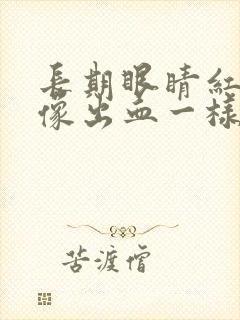 長期眼睛紅
像出血一樣
苦渡僧